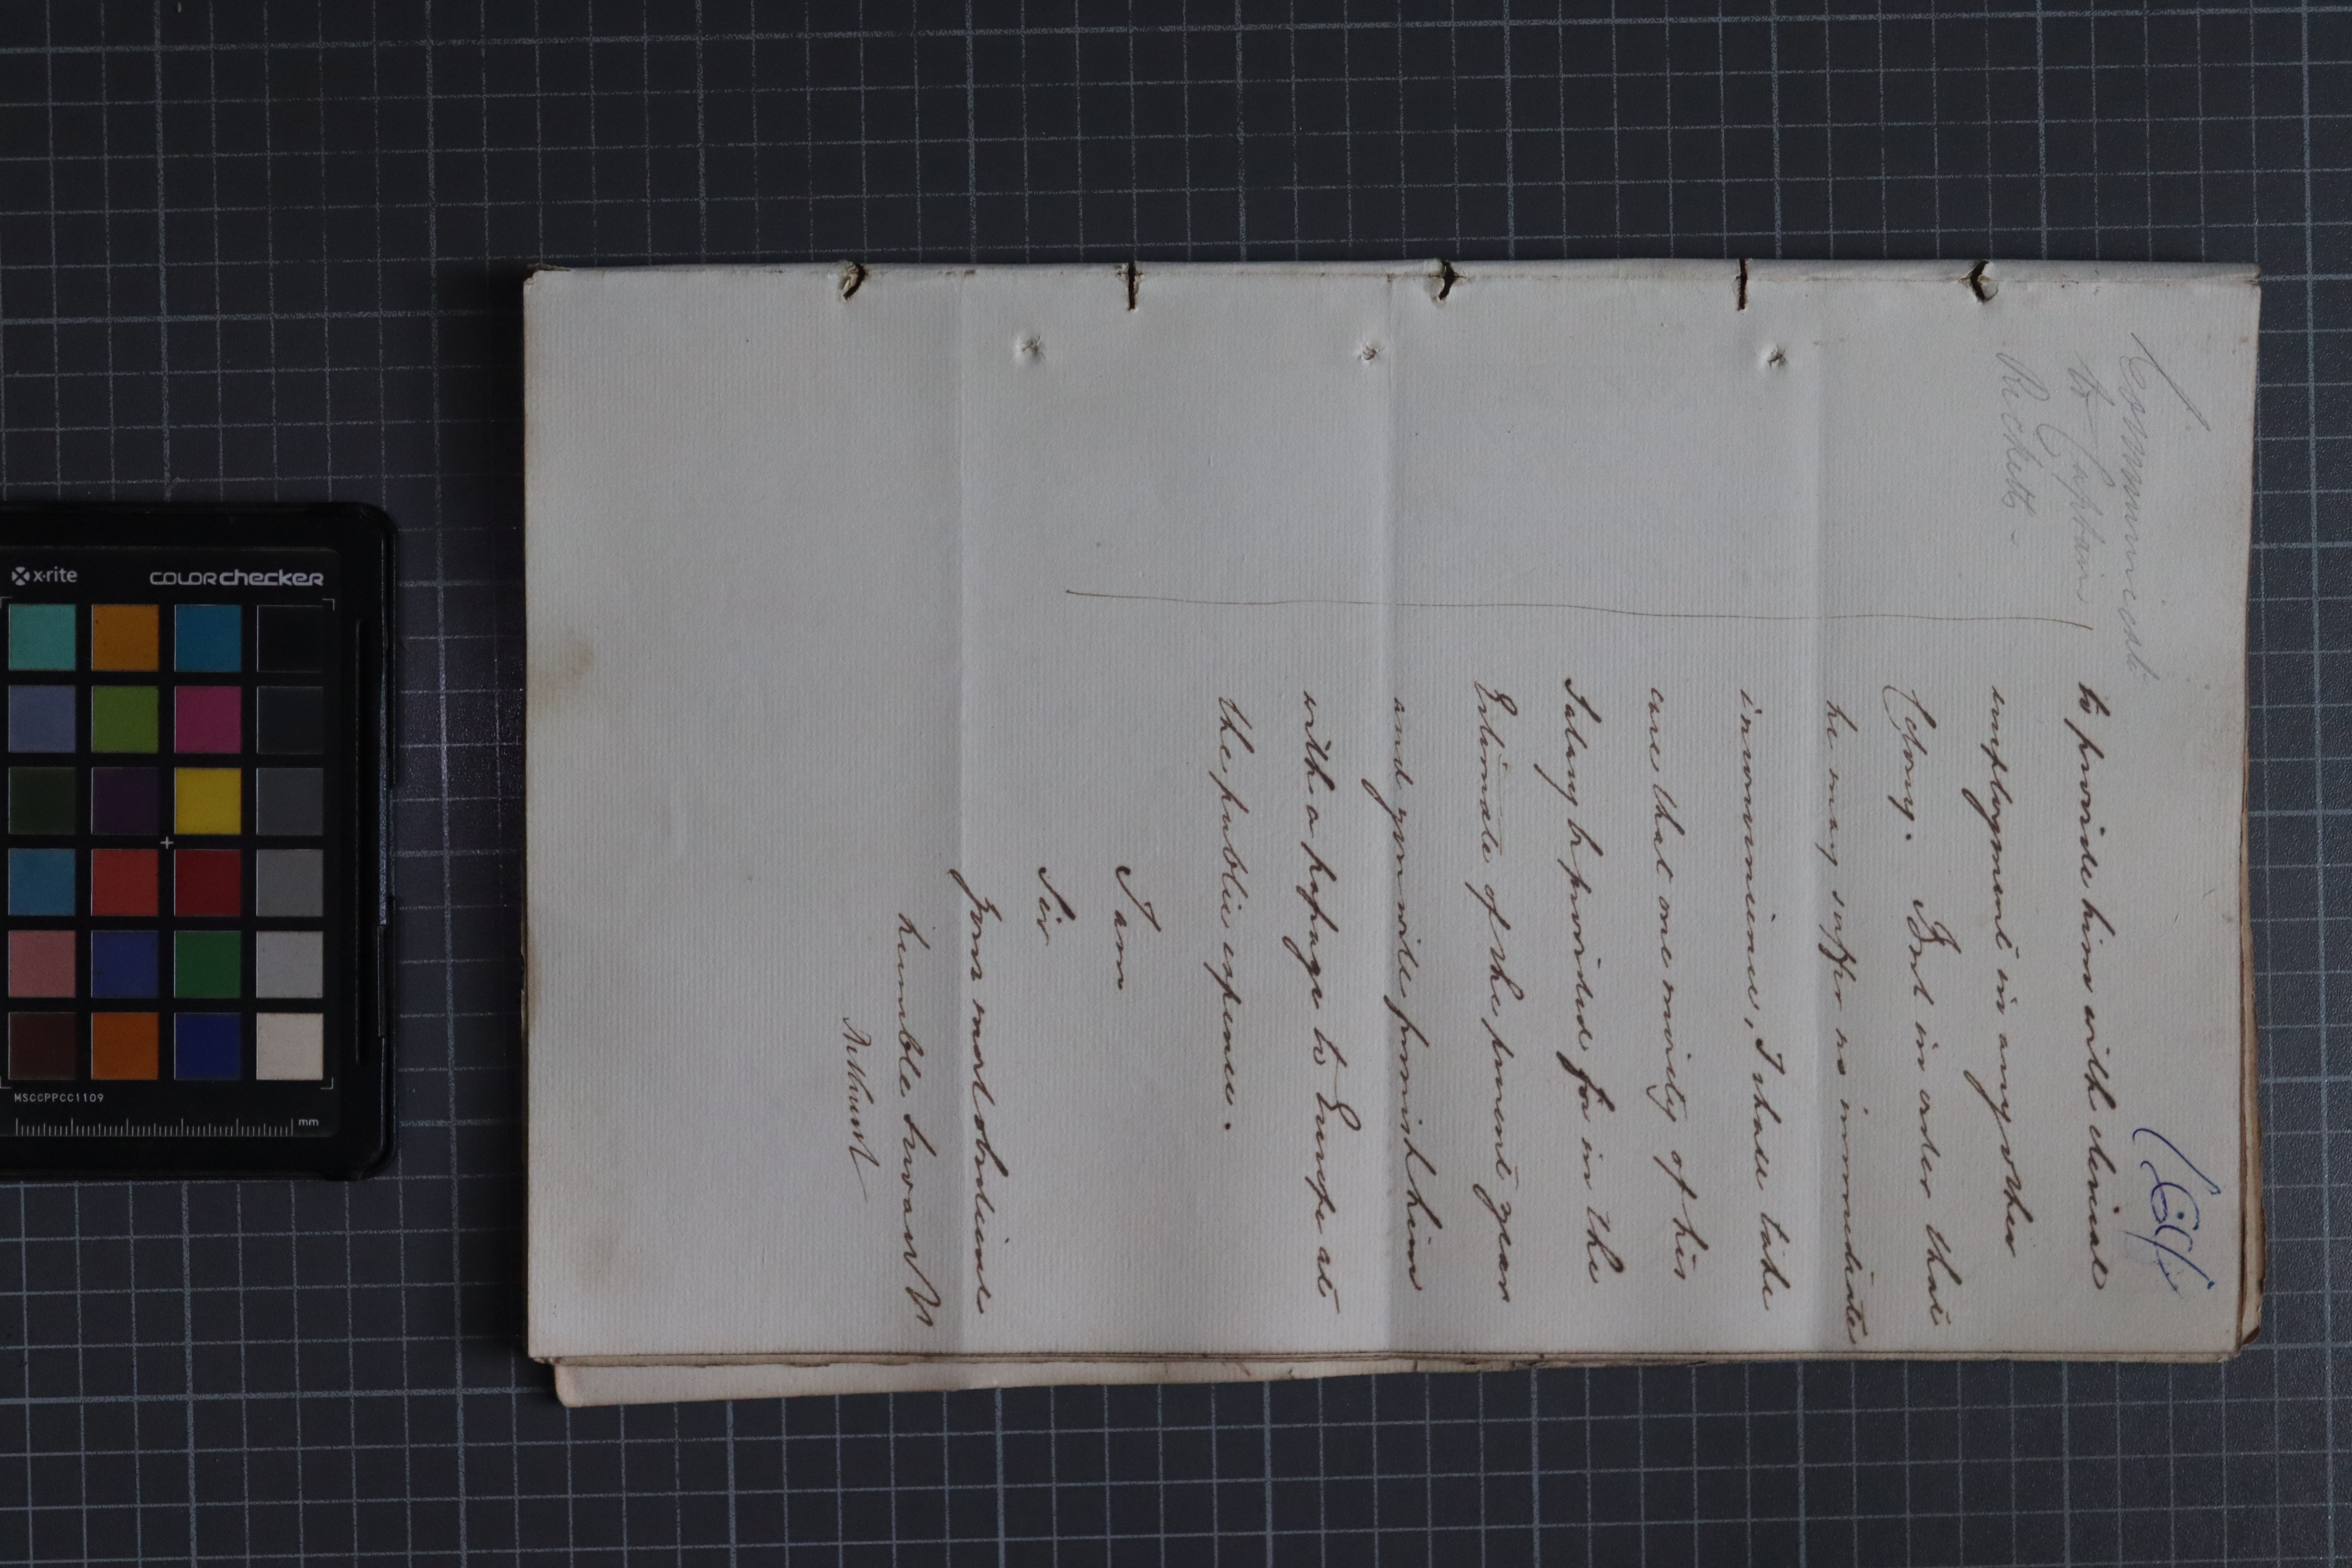 Communicate
to Captain
Ricketts -
to provide him with clerical
employment in any other
Colony. But in order that
he may suffer no immediate
inconvenience, I shall take
care that one moiety of his
Salary be provided for in the
Estimate of the present year
and you will furnish him
with a passage to Europe at
the public expence.
I am
Sir
Your most obedient
humble Servant
Bathurst
x-rite
COLORchecker
MSCCPPCC1109
mm